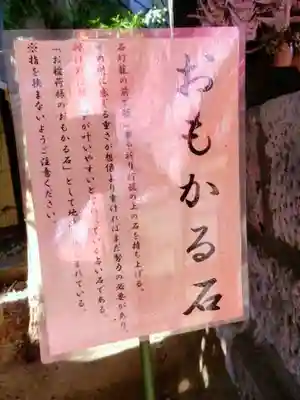 おもかる石
石灯籠の前で願い事を祈り灯籠の上の石を持ち上げる。
その時に感じる重さが想像より重ければまだ努力の必要があり、
軽ければ願い事が叶いやすいとされている占い石である。
「お稲荷様のおもかる石」として地元で親しまれている。
※指を挟まないようご注意ください。